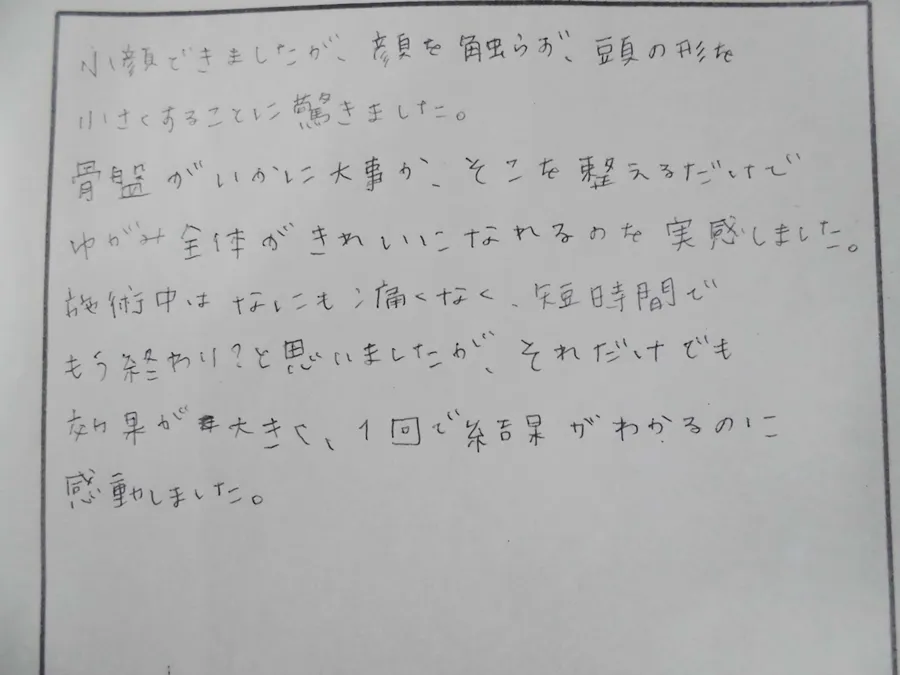 小顔できましたが、顔を触らず、頭の形を
小さくすることに驚きました。
骨盤がいかに大事か、そこを整えるだけで
ゆがみ全体がきれいになれるのを実感しました。
施術中はなにも痛くなく、短時間で
もう終わり?と思いましたが、それだけでも
効果が大きく、1回で結果がわかるのに
感動しました。